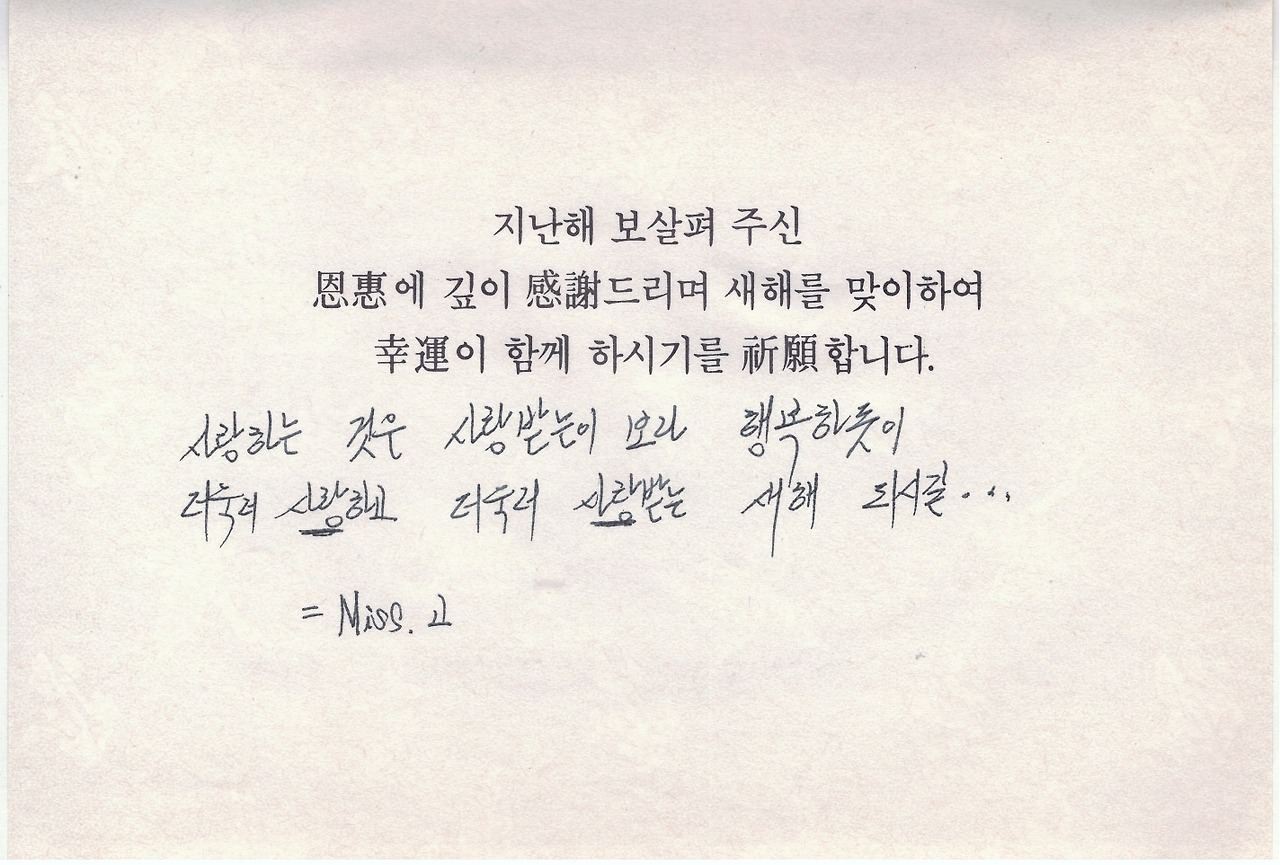 지난해 보살펴 주신
恩惠에 깊이 感謝드리며 새해를 맞이하여
幸運이 함께 하시기를 祈願합니다.
사랑하는 것은 사랑받는이 보라 행복하듯이
더욱더 사랑하고 더욱더 사랑받는 새해 되시길...
= Miss. 고